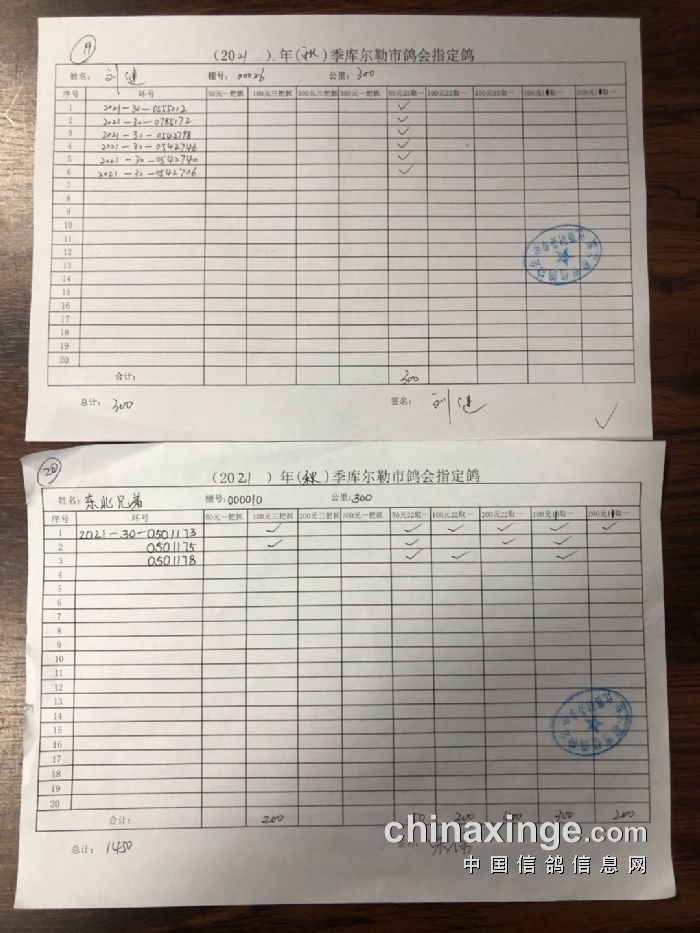 19
(2021 )年(秋)季库尔勒市鸽会指定鸽
姓名: 刘建 棚号: 00026 公里: 300
序号 环号 50元一把抓 100元三把抓 200元三把抓 300元一把抓 50元22取一 100元22取一 200元22取一 100元1 取一 200元1 取一
1 2021-30-0555012 ✓
2 2021-30-0785072 ✓
3 2021-30-0542798 ✓
4 2021-30-0542746 ✓
5 2021-30-0542740 ✓
6 2021-30-0542706 ✓
7
8
9
10
11
12
13
14
15
16
17
18
19
20
合计: 300
总计: 300 签名: 刘建 ✓
20
(2021 )年(秋)季库尔勒市鸽会指定鸽
姓名: 东北兄弟 棚号: 000010 公里: 300
序号 环号 50元一把抓 100元三把抓 200元三把抓 300元一把抓 50元22取一 100元22取一 200元22取一 100元1 取一 200元1 取一
1 2021-30-0501173 ✓ ✓ ✓ ✓ ✓ ✓
2 0501175 ✓ ✓ ✓ ✓
3 0501178 ✓ ✓ ✓
4
5
6
7
8
9
10
11
12
13
14
15
16
17
18
19
20
合计: 200 200 300 200
总计: 1450
chinaxinge.com
中国信鸽信息网